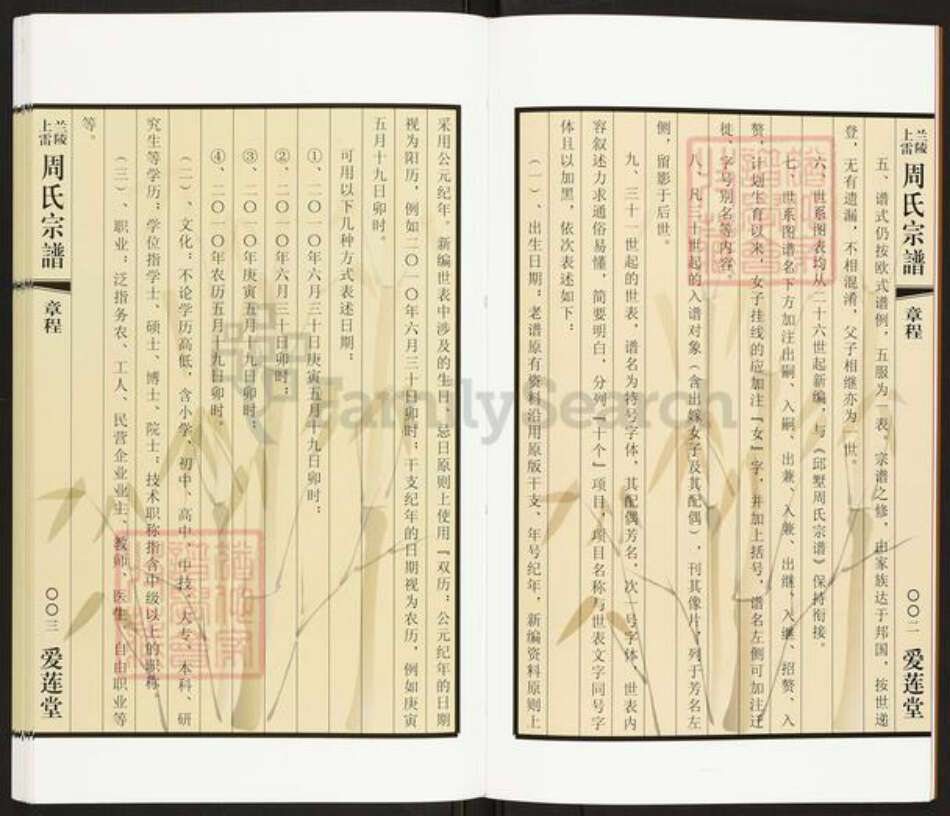 兰陵
上雷
周氏宗譜
章程
〇〇二
爱莲堂
五、谱式仍按欧式谱例，五服为一表。宗谱之修，由家族达于邦国，按世递
登，无有遗漏，不相混淆，父子相继亦为一世。
六、世系图表均从二十六世起新编，与《邱墅周氏宗谱》保持衔接。
七、世系图谱名下方加注出嗣、入嗣、出兼、入兼、出继、入继、招赘、入
赘，计划生育以来，女子挂线的应加注『女』字，并加上括号，谱名左侧可加注迁
徙、字号别名等内容。
八、凡三十世起的入谱对象（含出嫁女子及其配偶），刊其像片，列于芳名左
侧，留影于后世。
九、三十一世起的世表，谱名为特号字体，其配偶芳名，次一号字体，世表内
容叙述力求通俗易懂，简要明白，分列『十个』项目，项目名称与世表文字同号字
体且以加黑，依次表述如下：
（一）、出生日期：老谱原有资料沿用原版干支、年号纪年，新编资料原则上
采用公元纪年。新编世表中涉及的生日、忌日原则上使用『双历：公元纪年的日期
视为阳历，例如二〇一〇年六月三十日卯时；干支纪年的日期视为农历，例如庚寅
五月十九日卯时。
可用以下几种方式表述日期：
①、二〇一〇年六月三十日庚寅五月十九日卯时；
②、二〇一〇年六月三十日卯时；
③、二〇一〇年庚寅五月十九卯时；
④、二〇一〇年农历五月十九日卯时。
（二）、文化：不论学历高低，含小学、初中、高中、中技、大专、本科、研
究生等学历；学位指学士、硕士、博士、院士；技术职称指含中级以上的职称。
（三）、职业：泛指务农、工人、民营企业业主、教师、医生、自由职业等
等。
兰陵
上雷
周氏宗譜
章程
〇〇三
爱莲堂
FamilySearch